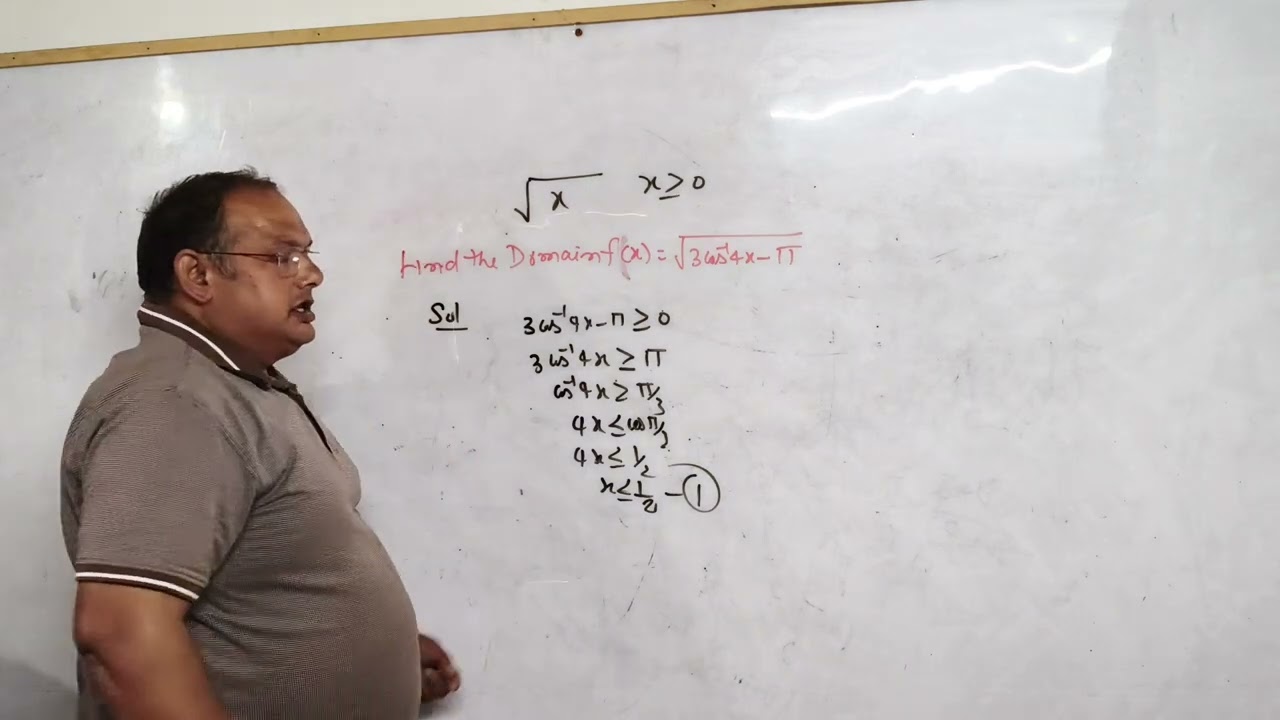 √x x ≥ 0
Find the Domain f(x) = √3cos⁻¹4x - π
Sol
3cos⁻¹4x - π ≥ 0
3cos⁻¹4x ≥ π
cos⁻¹4x ≥ π/3
4x ≤ cosπ/3
4x ≤ 1/2
x ≤ 1/2 - ①